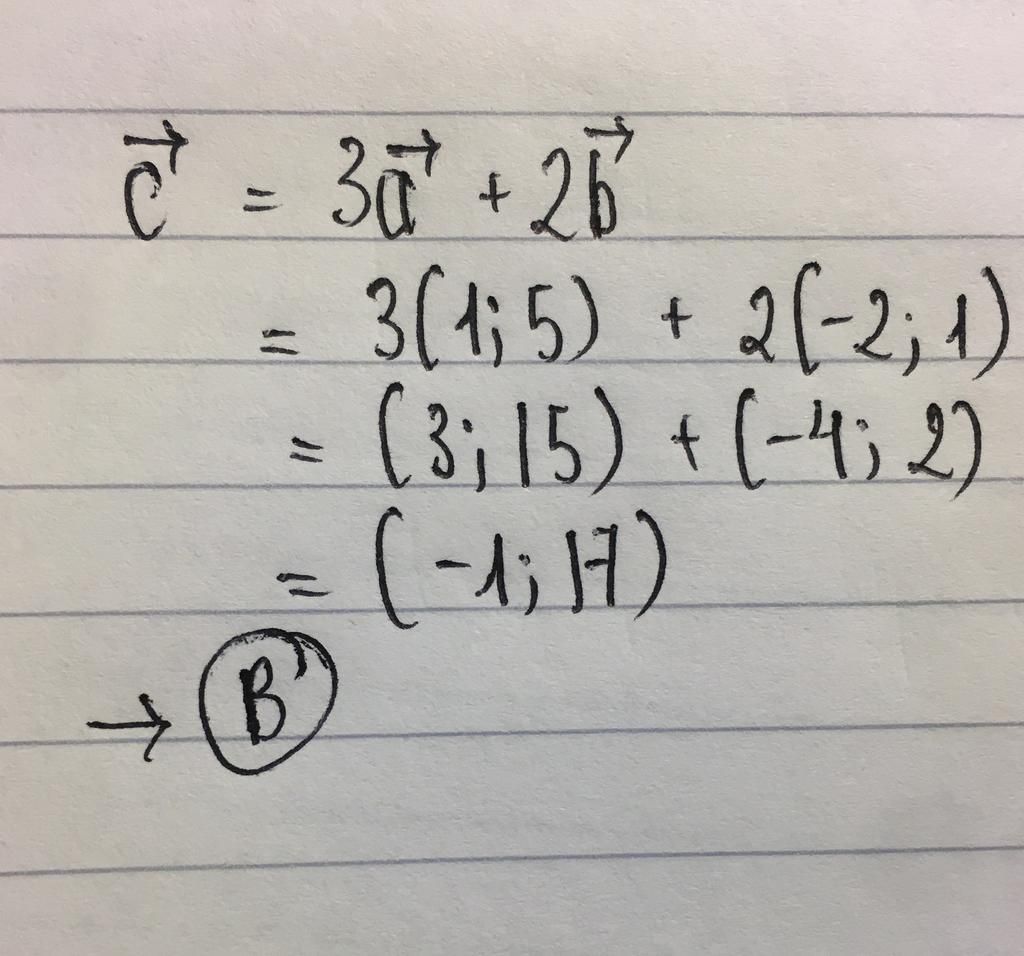 c⃗ = 3a⃗ + 2b⃗
= 3(1; 5) + 2(-2; 1)
= (3; 15) + (-4; 2)
= (-1; 17)
→ B